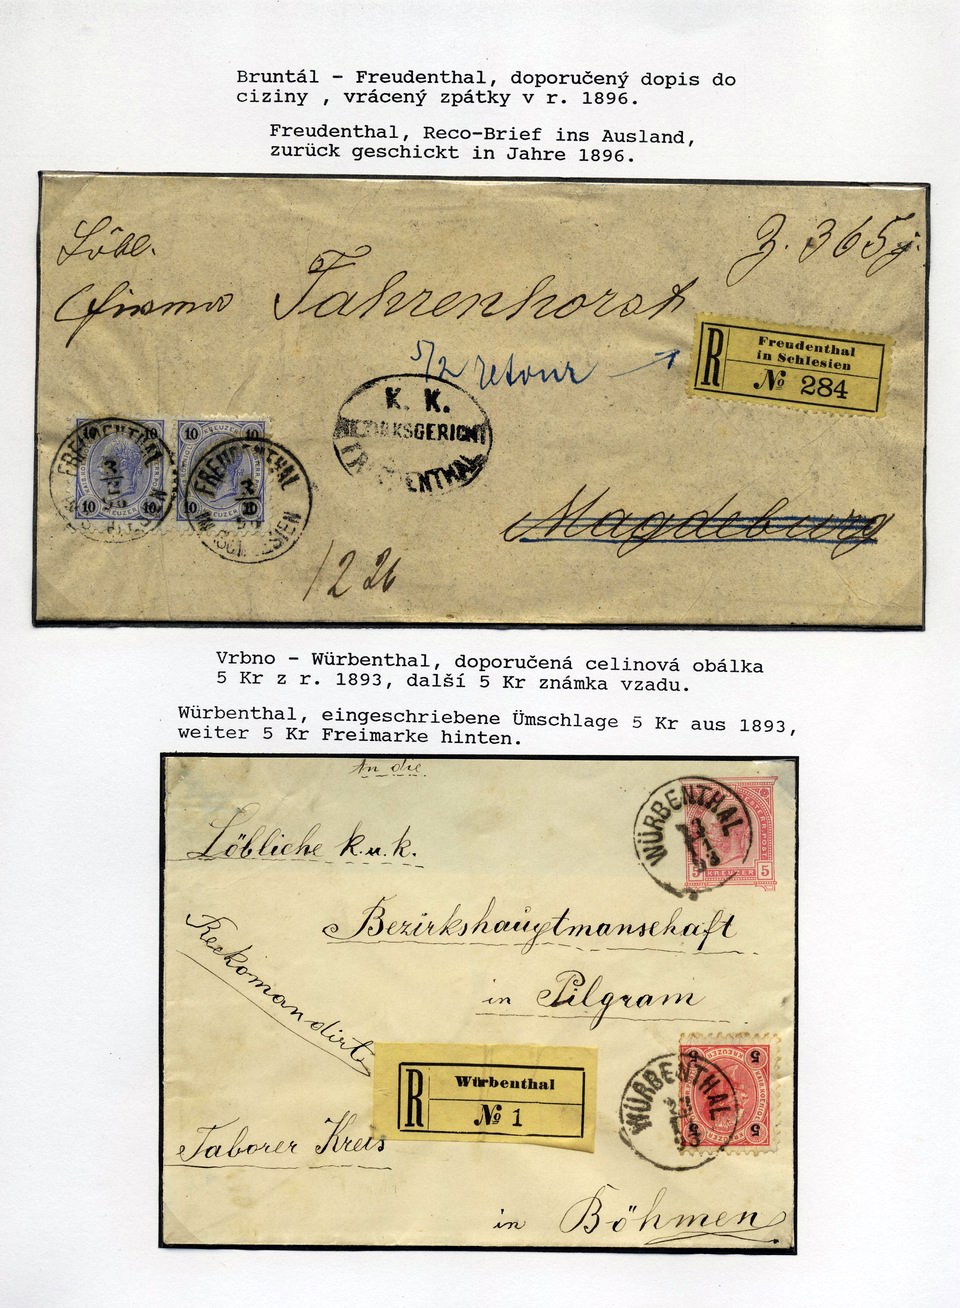 Bruntál - Freudenthal, doporučený dopis do
ciziny , vrácený zpátky v r. 1896.
Freudenthal, Reco-Brief ins Ausland,
zurück geschickt in Jahre 1896.
Löbl.
Z. 365
Firma Fahrenhorst
R
Freudenthal
in Schlesien
№ 284
5/2 retour
K. K.
BEZIRKSGERICHT
FREUDENTHAL
10 10 10 10
KREUZER
FREUDENTHAL
IN SCHLESIEN
FREUDENTHAL
IN SCHLESIEN
Magdeburg
1226
Vrbno - Würbenthal, doporučená celinová obálka
5 Kr z r. 1893, další 5 Kr známka vzadu.
Würbenthal, eingeschriebene Ümschlage 5 Kr aus 1893,
weiter 5 Kr Freimarke hinten.
An die
WÜRBENTHAL
5 KREUZER 5
Löbliche k.u.k.
Bezirkshauptmanschaft
Reckomandirt
in Pilgram
R
Würbenthal
№ 1
WÜRBENTHAL
5 5 5
KREUZER
Taborer Kreis
in Böhmen